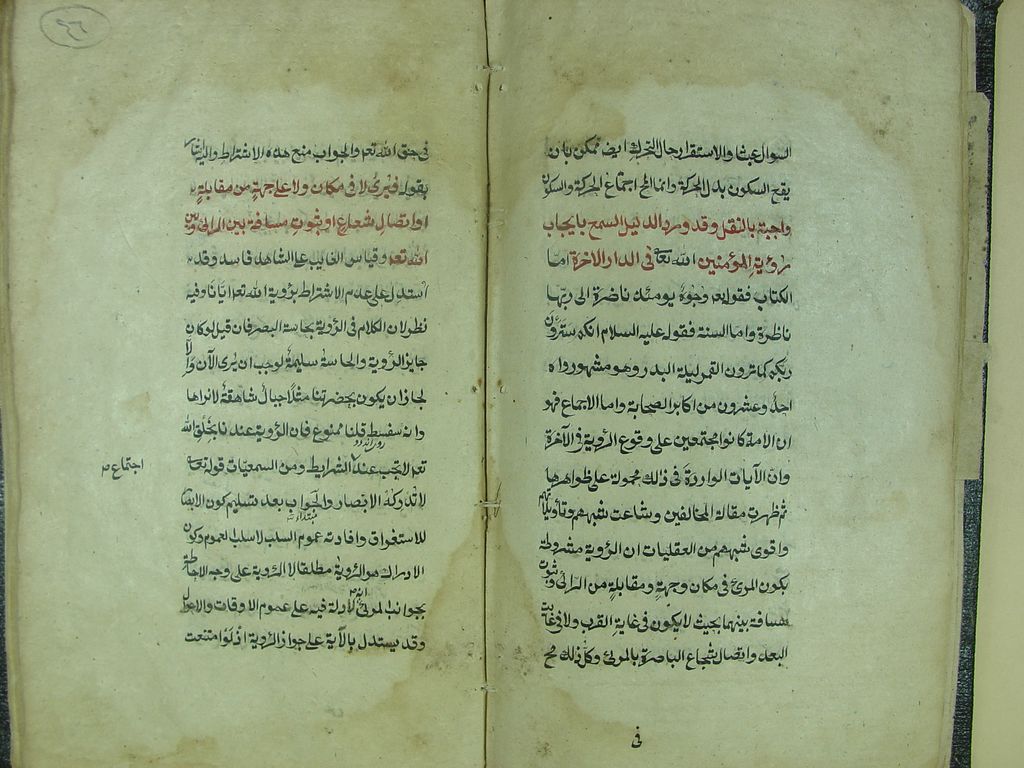 السوال عبثا والاستقرار حال التحرك ايضا ممكن بان
يقع السكون بدل الحركة وانما المح اجتماع الحركة والسكون
واجبة بالنقل وقد ورد الدليل السمع بايجاب
رؤية المؤمنين الله تعا فى الدار الاخرة اما
الكتاب فقوله تعـ وجوه يومئذ ناضرة الى ربها
ناظرة واما السنة فقوله عليه السلام انكم سترون
ربكم كما ترون القمر ليلة البدر وهو مشهور رواه
احد وعشرون من اكابر الصحابة واما الاجماع فهو
ان الامة كانوا مجتمعين على وقوع الرؤية فى الآخرة
وان الآيات الواردة فى ذلك محمولة على ظواهرها
ثم ظهرت مقالة المخالفين وشاعت شبههم وتأويلاتهم
واقوى شبههم من العقليات ان الرؤية مشروطة
بكون المرئ فى مكان وجهة ومقابلة من الرائى وثبوت
مسافة بينهما بحيث لا يكون فى غاية القرب ولا فى غاية
البعد واتصال شعاع الباصرة بالمرئ وكل ذلك مح
فى
٤٦
فى حق الله تعـ والجواب منع هذه الاشتراط واليه اشار
بقوله فيرى لا فى مكان ولا على جهة من مقابلة
او اتصال شعاع او ثبوت مسافة بين الرائى وبين
الله تعـ وقياس الغايب على الشاهد فاسد وقد
استدل على عدم الاشتراط برؤية الله تعـ ايانا وفيه
نظر لان الكلام فى الرؤية بحاسة البصر فان قيل لو كان
جايز الرؤية والحاسة سليمة لوجب ان يرى الآن والا
لجاز ان يكون بحضرتنا مثلا جبال شاهقة لا نراها
وانه سفسطة قلنا ممنوع فان الرؤية عندنا بخلق الله
تعـ لا تجب عند الشرايط ومن السمعيات قوله تعـ
اجتماع ص
لا تدركه الابصار والجواب بعد تسليم كون الابصار
للاستغراق وافادته عموم السلب لا سلب العموم وكون
الادراك هو الرؤية مطلقا لا الرؤية على وجه الاحاطة
بجوانب المرئى لا دلة فيه على عموم الاوقات والاحوال
وقد يستدل بالآية على جواز الرؤية اذ لو امتنعت